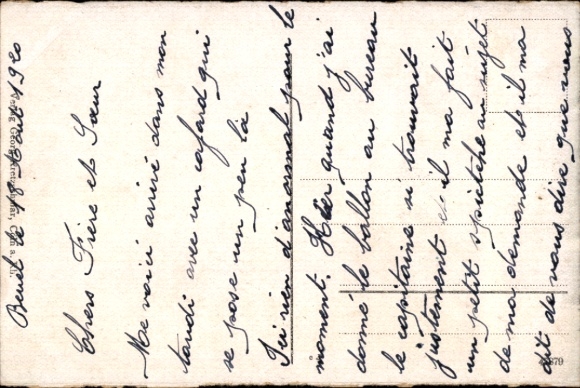 Beuel le 1920
Chers Frère et Sœur
Me voici arrivé dans mon
taudi avec un cafard qui
se pose un peu là
J'ai rien d'anormal pour le
moment. Hier quand j'ai
donné le ballon au bureau
le capitaine si trouvait
justement et il ma fait
un petit spietche au sujet
de ma demande et il ma
dit de vous dire que vous
Verlag Georg Cöln a. Rh.